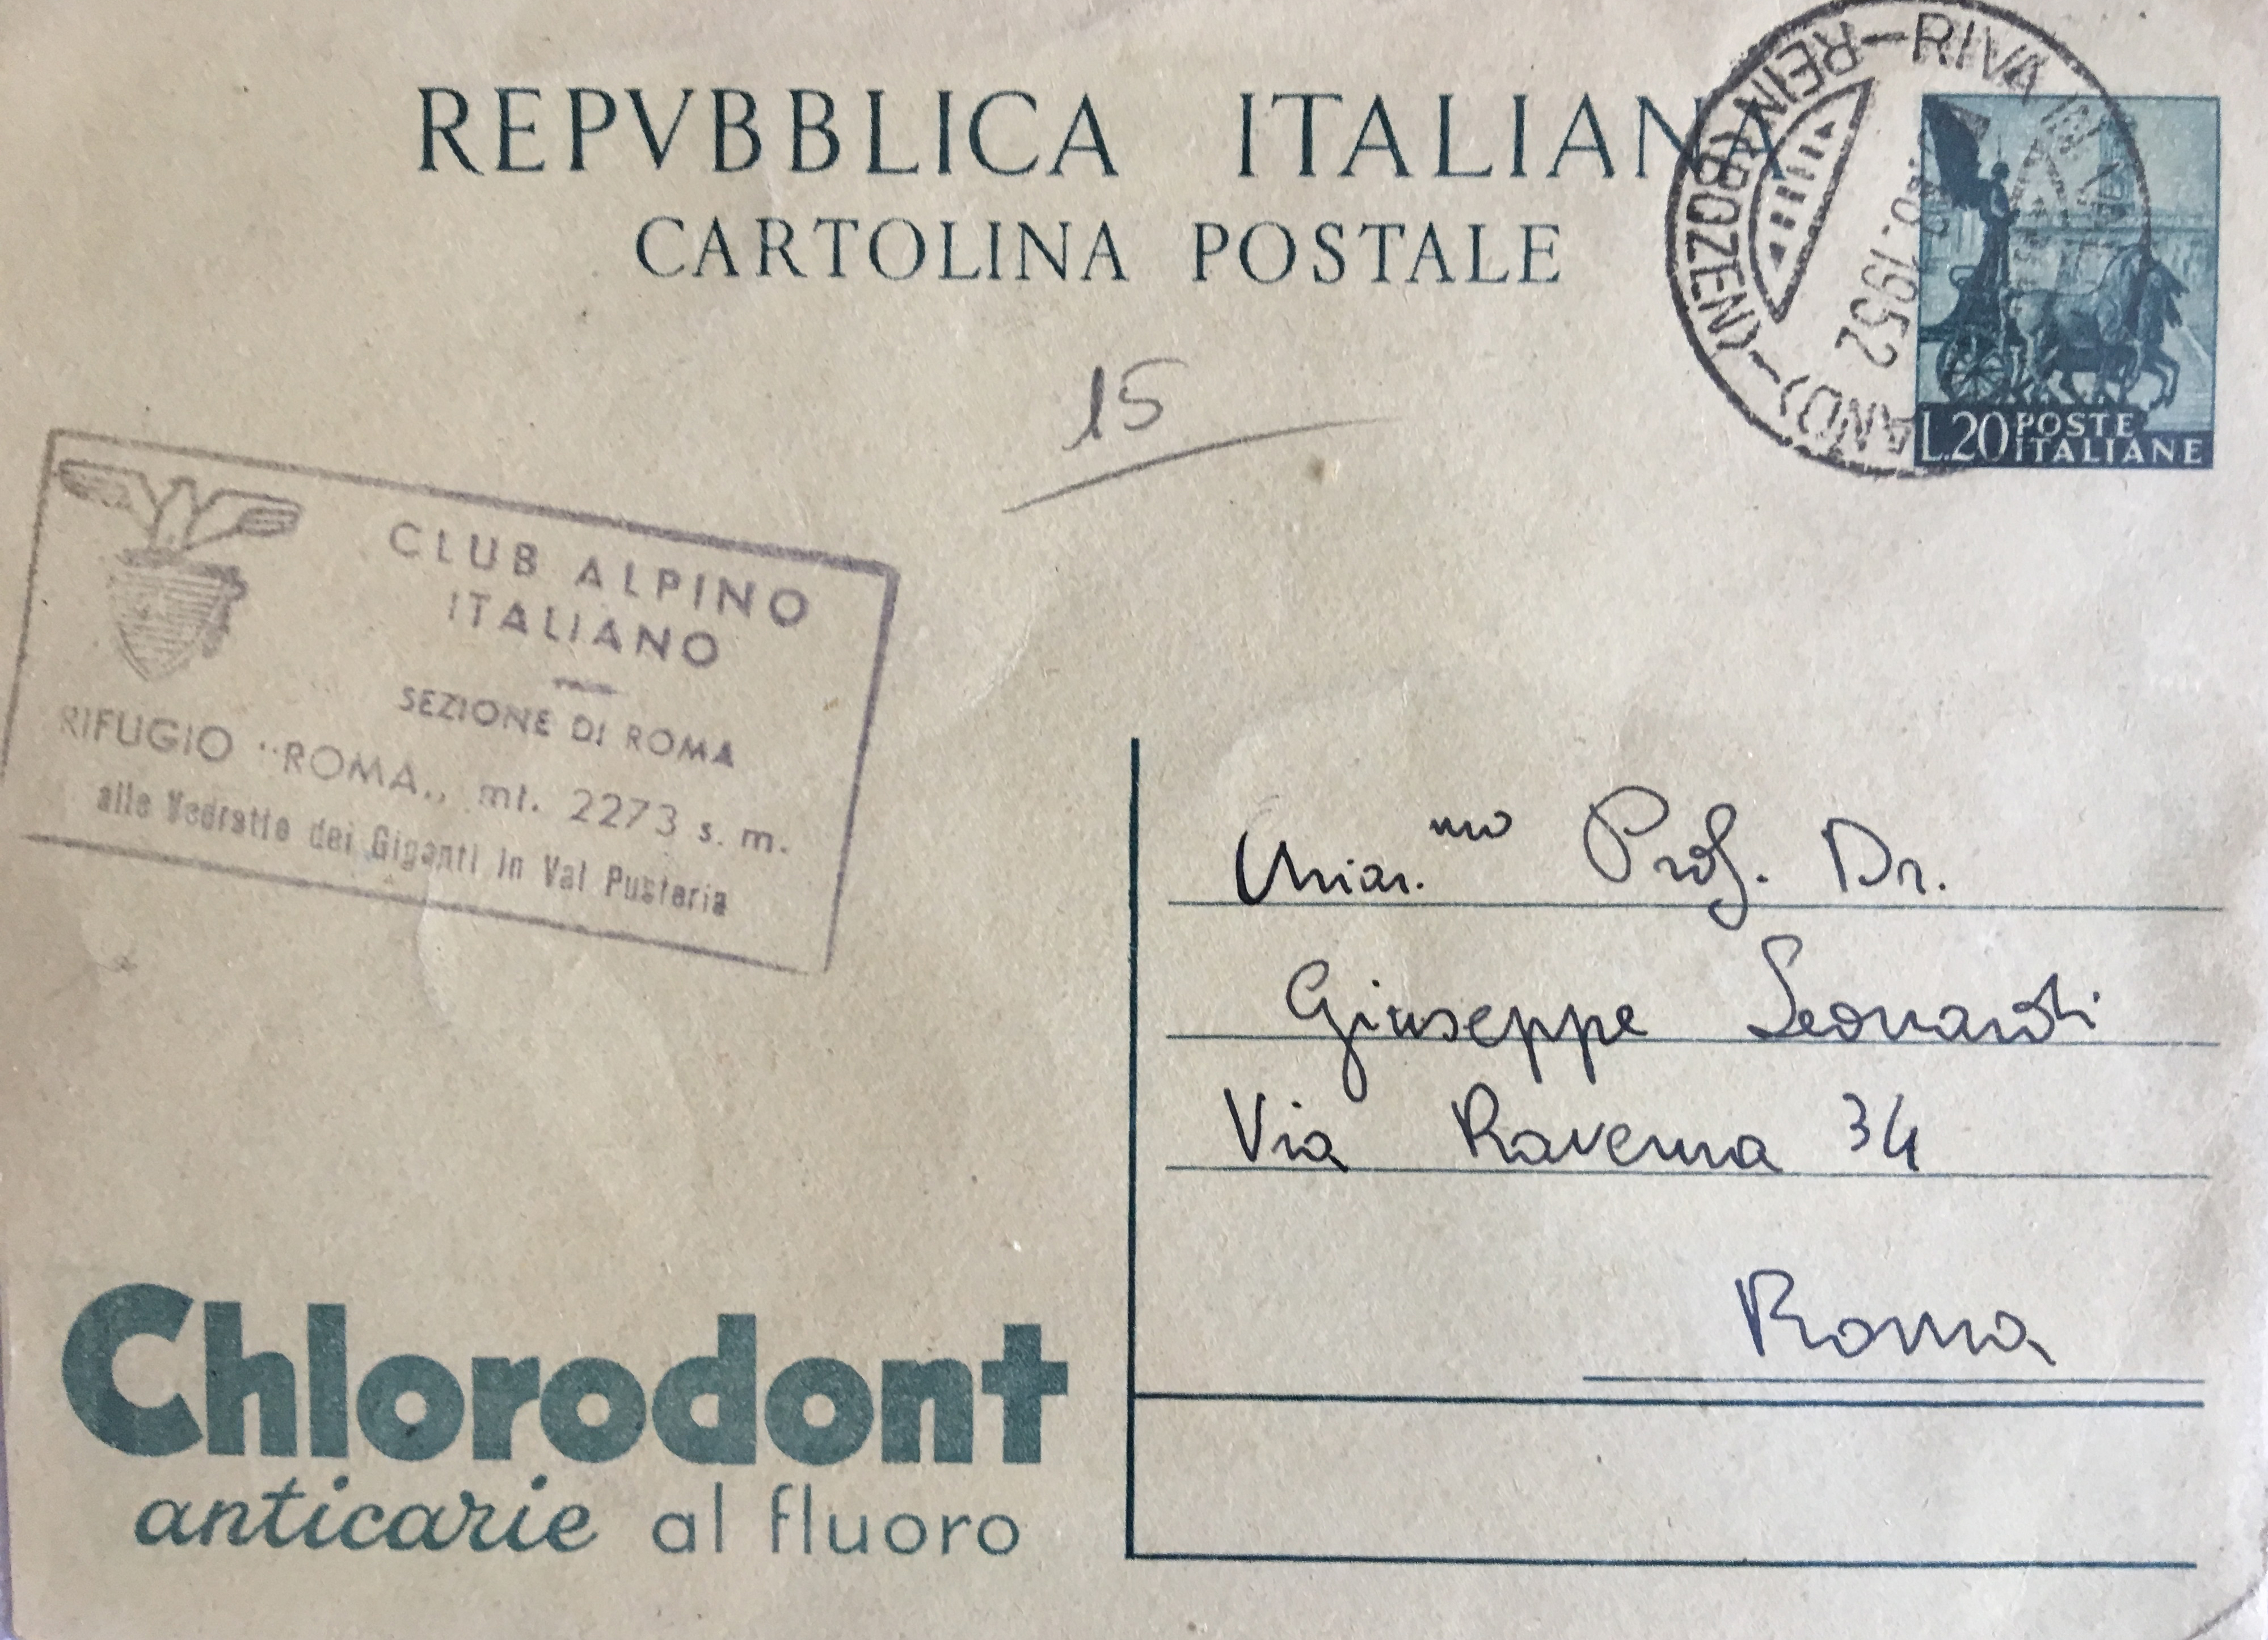 REPVBBLICA ITALIANA
CARTOLINA POSTALE
REIN (BOZEN) - RIVA
1952
L.20 POSTE
ITALIANE
15
CLUB ALPINO
ITALIANO
SEZIONE DI ROMA
RIFUGIO "ROMA„ mt. 2273 s. m.
alle Vedrette dei Giganti in Val Pusteria
Chiar.mo Prof. Dr.
Giuseppe Leonardi
Via Ravenna 34
Roma
Chlorodont
anticarie al fluoro